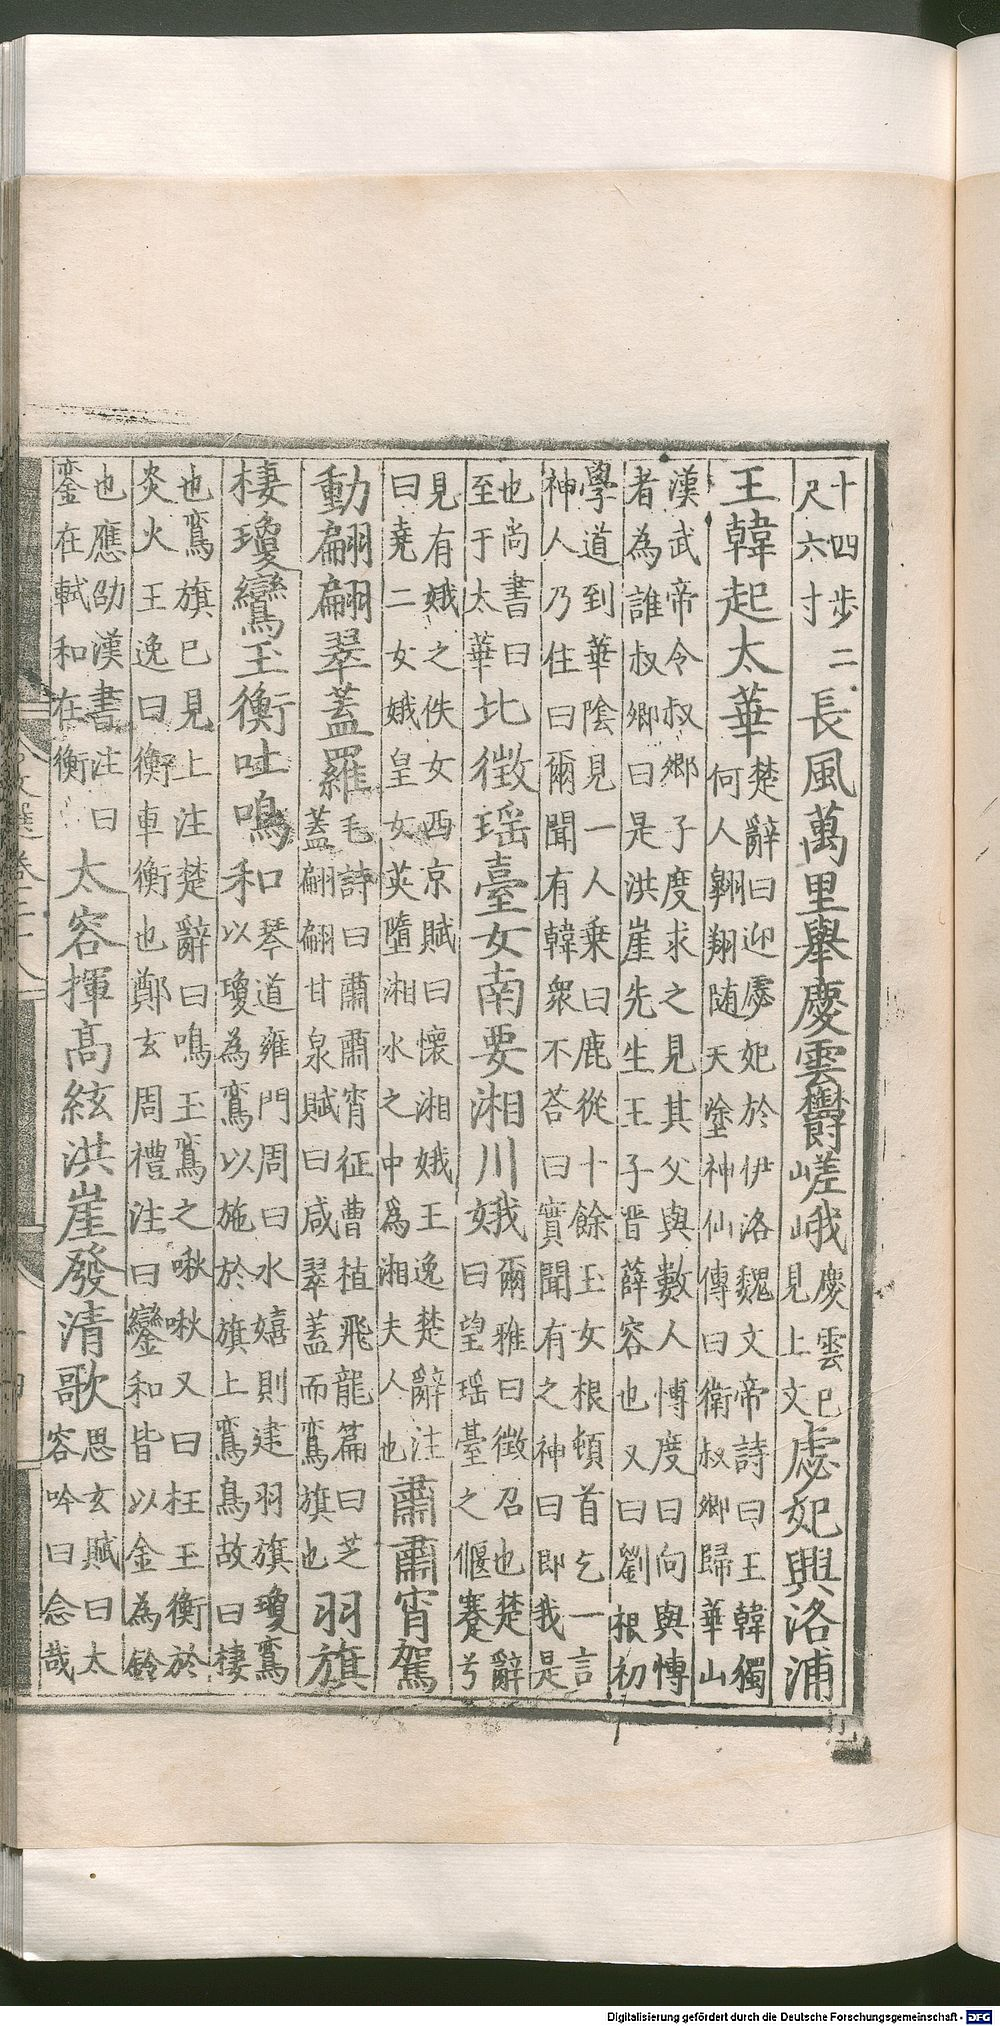 十四步二尺六寸長風萬里舉慶雲鬱嵯峨慶雲已見上文虙妃興洛浦
王韓起太華楚辭曰迎虙妃於伊洛魏文帝詩曰王韓獨何人翱翔随天塗神仙傳曰衛叔卿歸華山
漢武帝令叔卿子度求之見其父與數人博度曰向與博者為誰叔卿曰是洪崖先生王子晋薛容也又曰劉根初
學道到華陰見一人乗曰鹿從十餘玉女根頓首乞一言神人乃住曰爾聞有韓衆不荅曰實聞有之神曰即我是
也尚書曰至于太華北徵瑶臺女南要湘川娥爾雅曰徵召也楚辭曰望瑶臺之偃蹇兮
見有娥之佚女西京賦曰懷湘娥王逸楚辭注曰堯二女娥皇女英墮湘水之中為湘夫人也肅肅宵駕
動翩翩翠蓋羅毛詩曰肅肅宵征曹植飛龍篇曰芝蓋翩翩甘泉賦曰咸翠蓋而鸞旗也羽旗
棲瓊鸞玉衡吐鳴和琴道雍門周曰水嬉則建羽旗瓊鸞以瓊為鸞以施於旗上鸞鳥故曰棲
也鸞旗已見上注楚辭曰鳴玉鸞之啾啾又曰枉玉衡於炎火王逸曰衡車衡也鄭玄周禮注曰鑾和皆以金為鈴
也應劭漢書注曰鑾在軾和在衡太容揮高絃洪崖發清歌思玄賦曰太容吟曰念哉
Digitalisierung gefördert durch die Deutsche Forschungsgemeinschaft - DFG